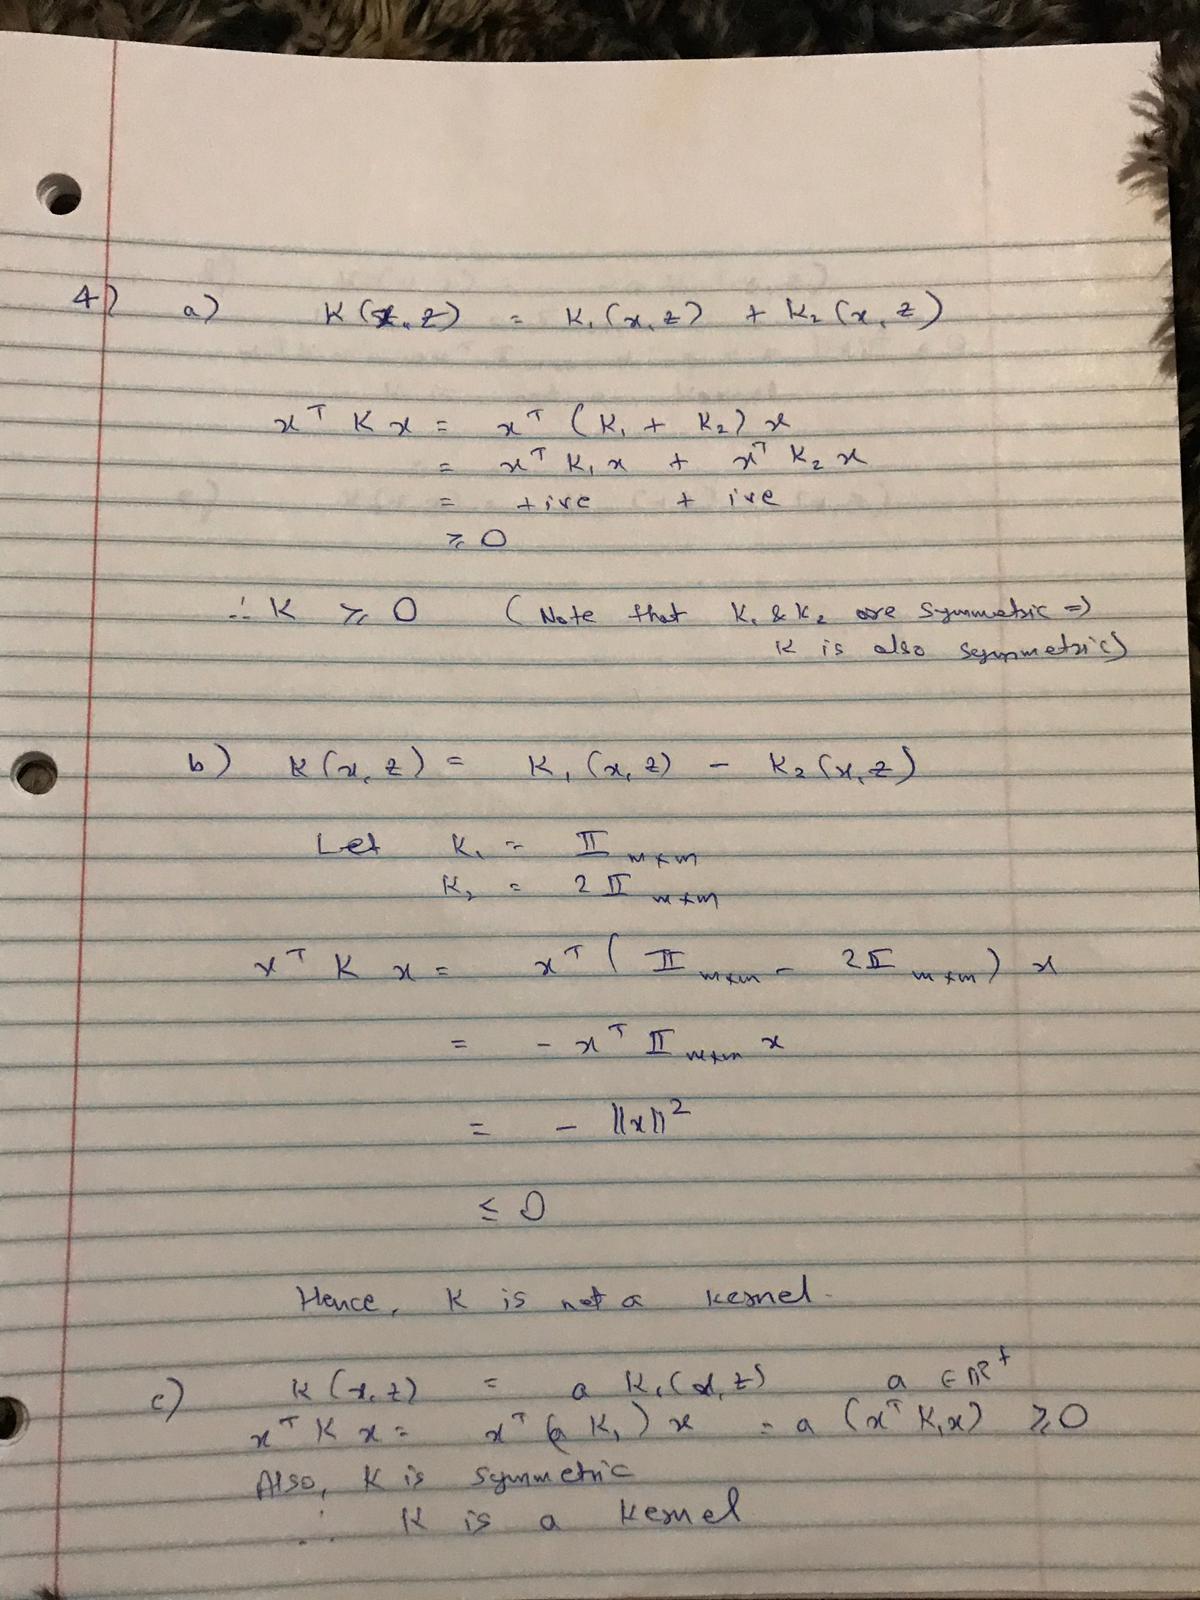 4) a) K(x, z) = K₁(x, z) + K₂(x, z)
xᵀ K x = xᵀ (K₁ + K₂) x
= xᵀ K₁ x + xᵀ K₂ x
= +ive + ive
≥ 0
∴ K ≥ 0 (Note that K₁ & K₂ are symmetric =>
K is also symmetric)
b) K(x, z) = K₁(x, z) - K₂(x, z)
Let K₁ = 𝕀 m×m
K₂ = 2𝕀 m×m
xᵀ K x = xᵀ (𝕀 m×m - 2𝕀 m×m) x
= - xᵀ 𝕀 m×m x
= - ||x||²
≤ 0
Hence, K is not a kernel.
c) K(x, z) = a K₁(x, z) a ∈ ℝ⁺
xᵀ K x = xᵀ (a K₁) x = a (xᵀ K₁ x) ≥ 0
Also, K is symmetric
∴ K is a kernel